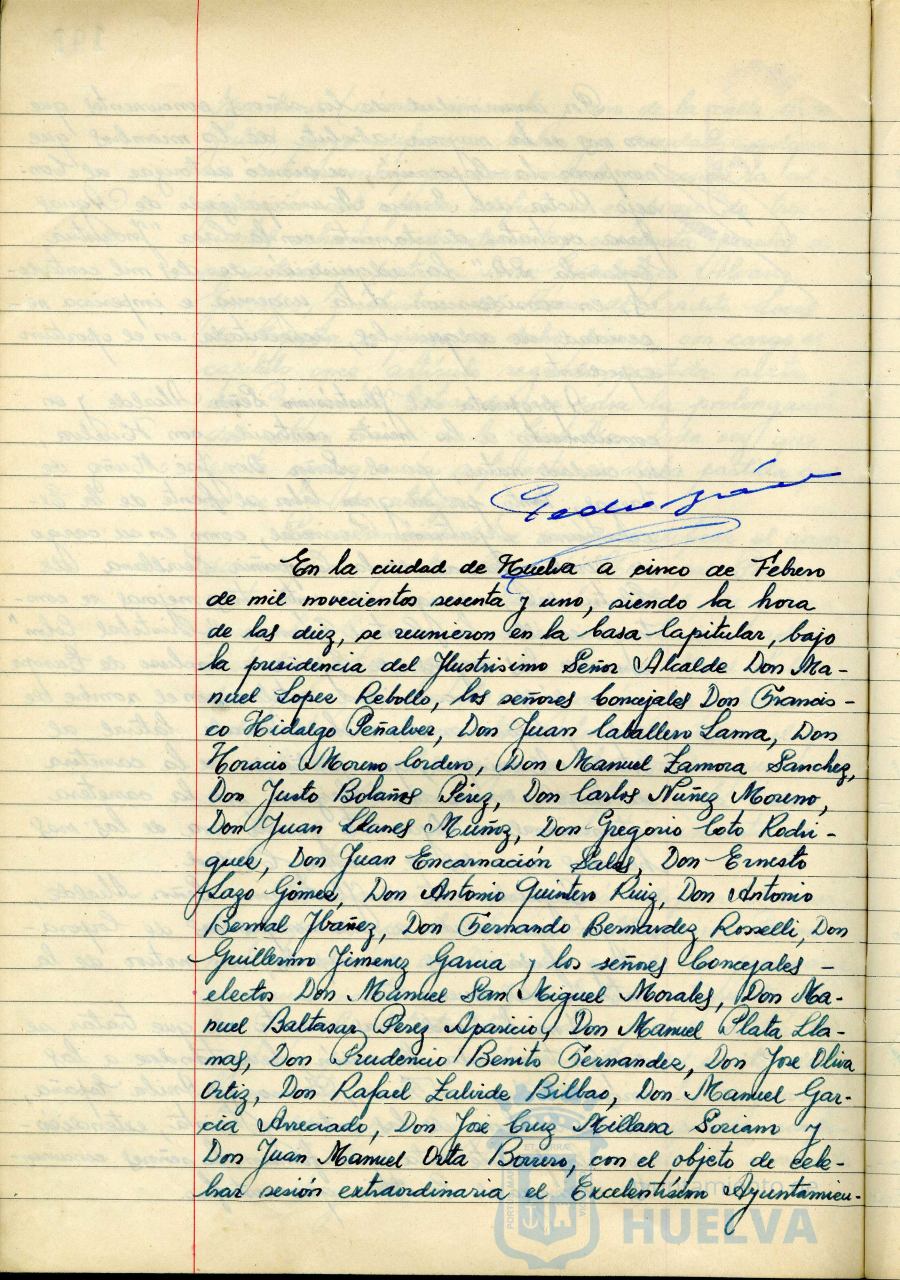 En la ciudad de Huelva a cinco de Febrero
de mil novecientos sesenta y uno, siendo la hora
de las diez, se reunieron en la Casa Capitular, bajo
la presidencia del Ilustrisimo Señor Alcalde Don Ma-
nuel Lopez Rebollo, los señores Concejales Don Francis-
co Hidalgo Peñalver, Don Juan Caballero Lama, Don
Horacio Moreno Cordero, Don Manuel Zamora Sanchez,
Don Justo Bolaños Pérez, Don Carlos Nuñez Moreno,
Don Juan Llanes Muñoz, Don Gregorio Coto Rodri-
guez, Don Juan Encarnación Salas, Don Ernesto
Lazo Gómez, Don Antonio Quintero Ruiz, Don Antonio
Bernal Ibañez, Don Fernando Bernardez Rosselli, Don
Guillermo Jimenez Garcia y los señores Concejales -
electos Don Manuel San Miguel Morales, Don Ma-
nuel Baltasar Perez Aparicio, Don Manuel Plata Lla-
nas, Don Prudencio Benito Fernandez, Don Jose Oliva
Ortiz, Don Rafael Zalvide Bilbao, Don Manuel Gar-
cia Arreciado, Don Jose Cruz Millana Soriano y
Don Juan Manuel Orta Borrero, con el objeto de cele-
brar sesión extraordinaria el Excelentísimo Ayuntamien-
Ayuntamiento de
HUELVA